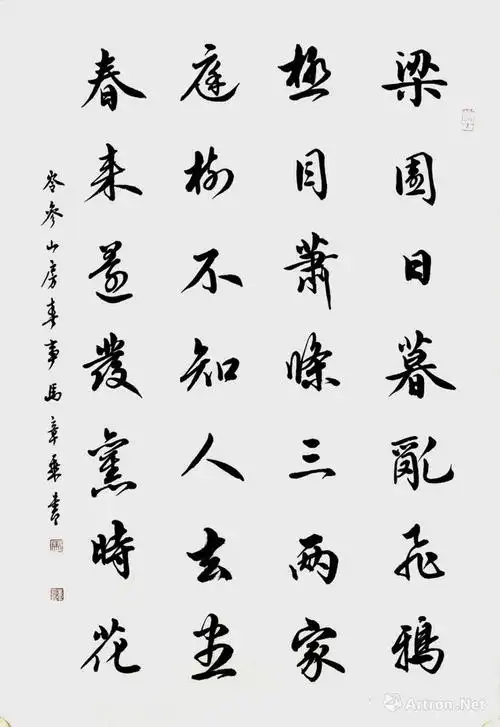 梁園日暮亂飛鴉
極目蕭條三兩家
庭樹不知人去盡
春來還發舊時花
岑參山房春事馬章乘書
Artron.Net